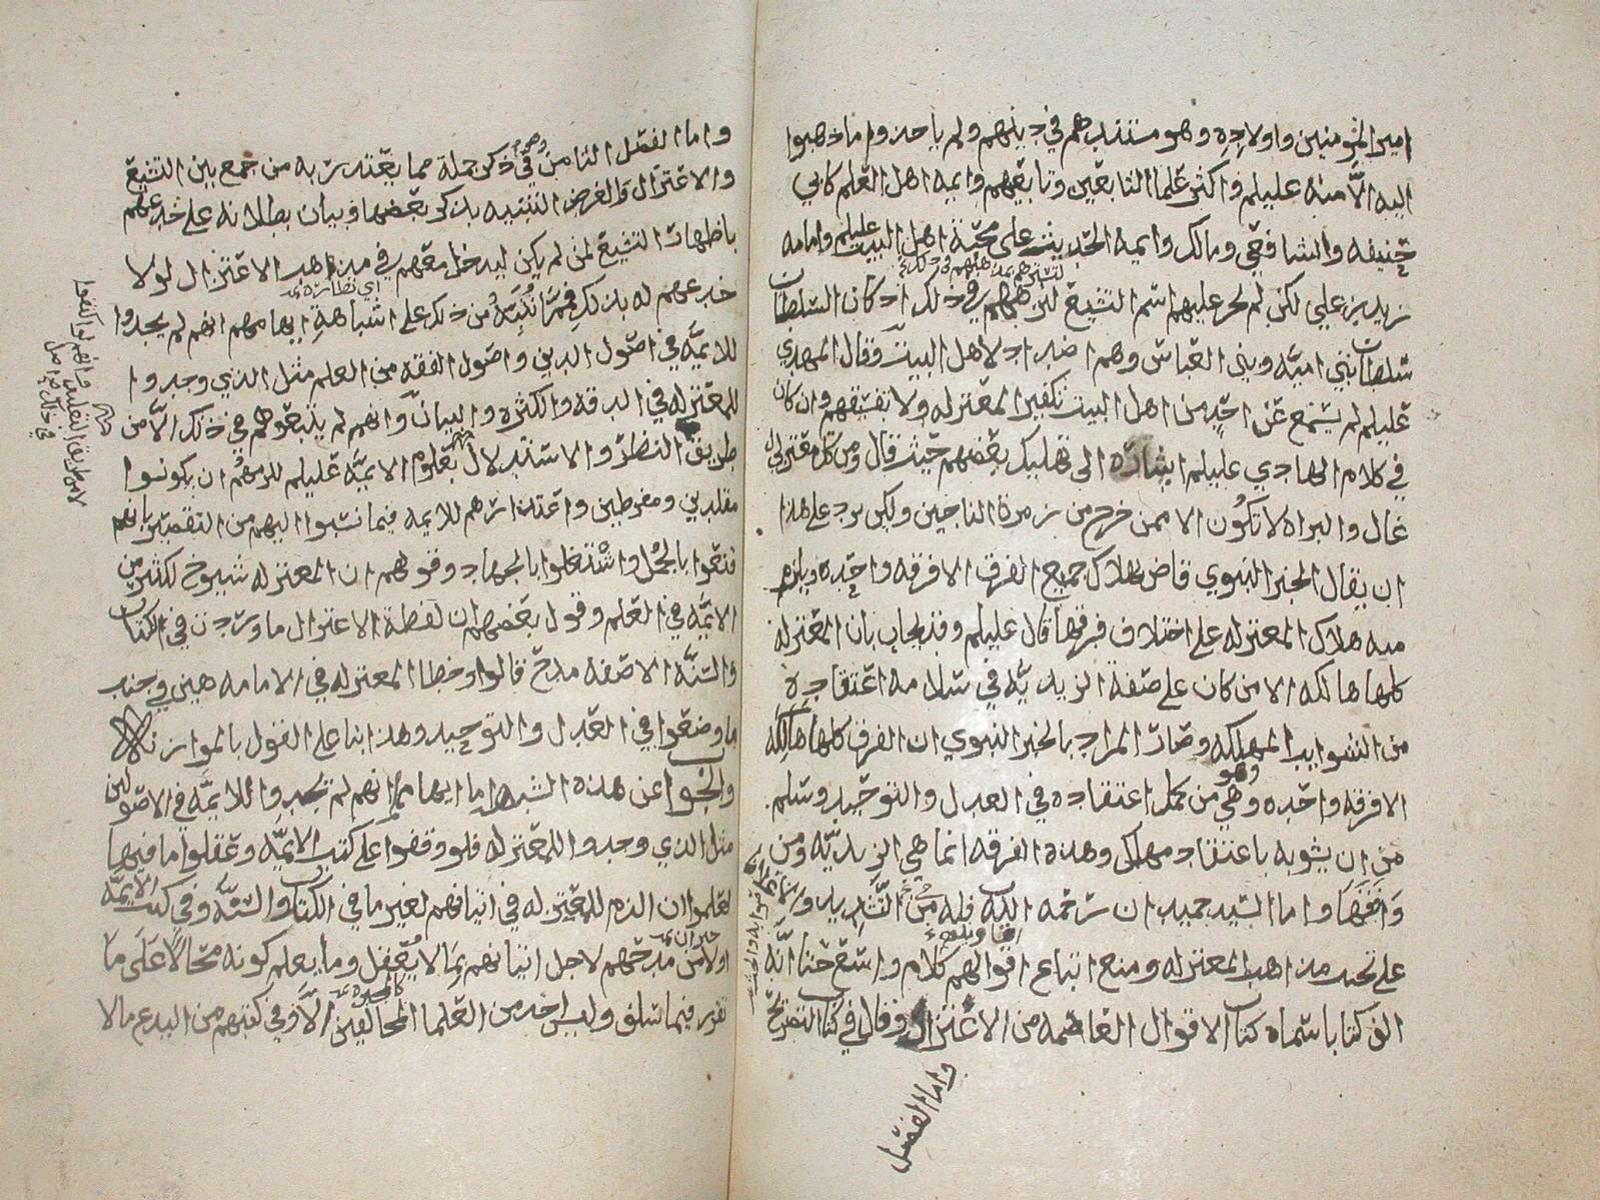 امير المؤمنين واولاده وهو مستندهم في دينهم ولم ياخذوا ما ذهبوا
اليه الا منه عليلم واكثر علما التابعين وتابعيهم وايمة اهل العلم كابي
حنيفه والشافعي ومالك وايمة الحديث على محبة اهل البيت عليلم وامامه
زيد بن علي لكن لم يجر عليهم اسم التشيع في ذلك اذ كان السلطان
سلطان بني اميه وبني العباس وهم اضداد لاهل البيت وقال المهدي
عليلم لم يسمع عن احد من اهل البيت تكفير المعتزله ولا تفسيقهم وان كان
في كلام الهادي عليلم اشاره الى تهليك بعضهم حيث قال ومن كل معتزلي
غال والبراه لا تكون الا ممن خرج من زمرة الناجين ولكن يرد على هذا
ان يقال الخبر النبوي قاض بهلاك جميع الفرق الا فرقه واحده ويلزم
منه هلاك المعتزله على اختلاف فرقها قال عليلم وقد يجاب بان المعتزله
كلها هالكه الا من كان على صفة الزيديه في سلامة اعتقاده
من الشوايب المهلكه وصار المراد بالخبر النبوي ان الفرق كلها هالكه
الا فرقه واحده وهي من كمل اعتقاده في العدل والتوحيد وسلم
من ان يشوبه باعتقاد مهلك وهذه الفرقه انما هي الزيديه ومن
وافقها واما السيد حميدان رحمه الله فله من التشديد
على تحيد مذاهب المعتزله ومنع اتباع اقوالهم كلام واسع حتى انه
الف كتابا سماه كتاب الاقوال العاصمه من الاعتزال وقال في كتاب التصريح
واما الفصل
واما الفصل الثامن وهو في ذكر جملة مما يعتذر به من جمع بين التشيع
والاعتزال والغرض التنبيه بذكر بعضها وبيان بطلانه على خدعهم
باظهار التشيع لمن لم يكن ليدخل معهم في مذاهب الاعتزال لولا
خدعهم له بذلك فمما نُنَبِّه من ذلك على اشباهه ايهامهم انهم لم يجدوا
للايمة في اصول الدين واصول الفقه من العلم مثل الذي وجدوا
للمعتزله في الدقه والكثره والبيان وانهم لم يتبعوهم في ذلك الا من
طريق النظر والاستدلال بعلوم الايمة عليلم للزمهم ان يكونوا
مقلدين ومفرطين واعتذارهم للايمه فيما نسبوا اليهم من التقصير بانهم
قنعوا بالجُمل واشتغلوا بالجهاد وقولهم ان المعتزله شيوخ لكثير من
الايمة في العلم وقول بعضهم ان لفظة الاعتزال ما وردت في الكتاب
والسنة الا صفه مدح قالوا وخطا المعتزله في الامامه هين في جنب
ما وضعوا في العدل والتوحيد وهذا بنا على القول بالموازنه
والجواب عن هذه الشبه اما ايهامهم انهم لم يجدوا للايمة في الاصولين
مثل الذي وجدوا للمعتزله فلو وقفوا على كتب الايمة وعقلوا ما فيها
لعلموا ان الذم للمعتزله في اتيانهم لغير ما في الكتاب والسنة وفي كتب الايمة
اولا من مدحهم لاجل اتيانهم بما لا يُعقل وما يعلم كونه محالًا على ما
تقرر فيما سلف وليس احد من العلما المخالفين الا وفي كتبهم من البدع ما لا